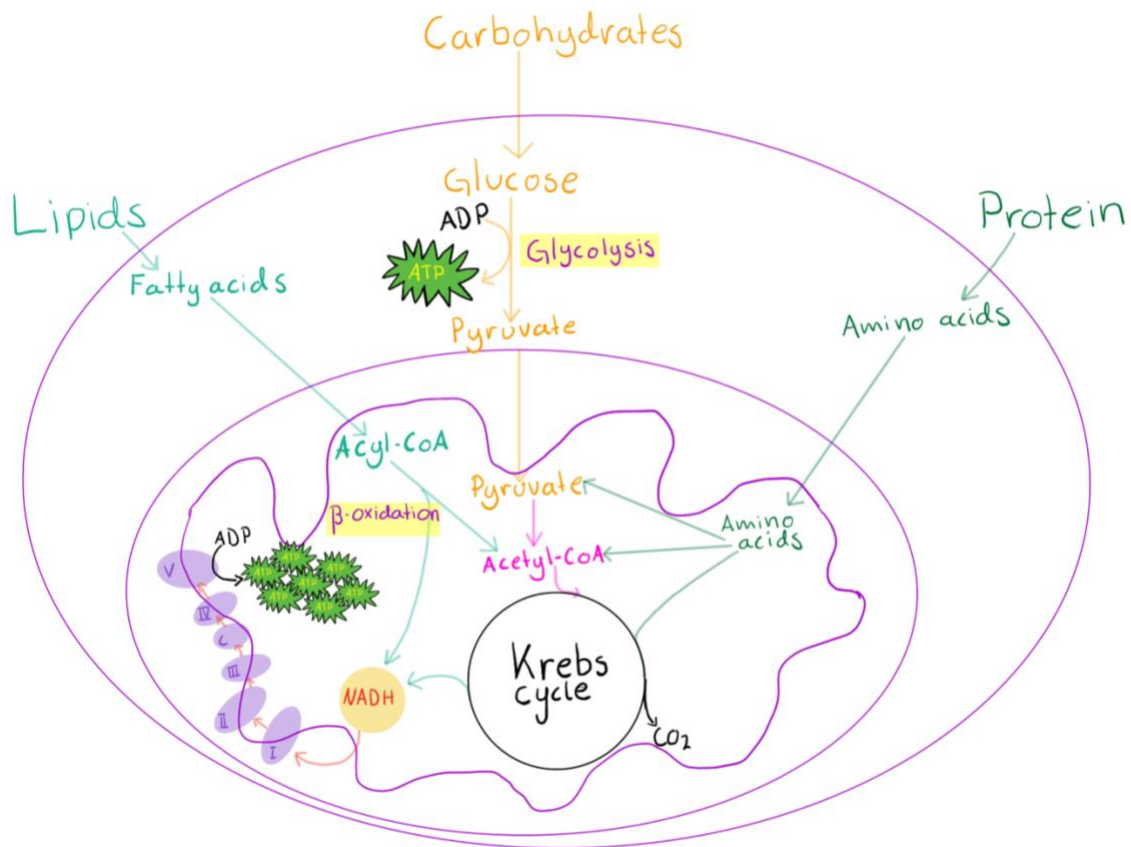 Carbohydrates
Glucose
ADP
ATP
Glycolysis
Pyruvate
Lipids
Fatty acids
Protein
Amino acids
Acyl-CoA
β-oxidation
Pyruvate
Acetyl-CoA
Amino
acids
ADP
ATP
ATP
ATP
ATP
ATP
ATP
ATP
V
IV
C
III
II
I
NADH
Krebs
cycle
CO2